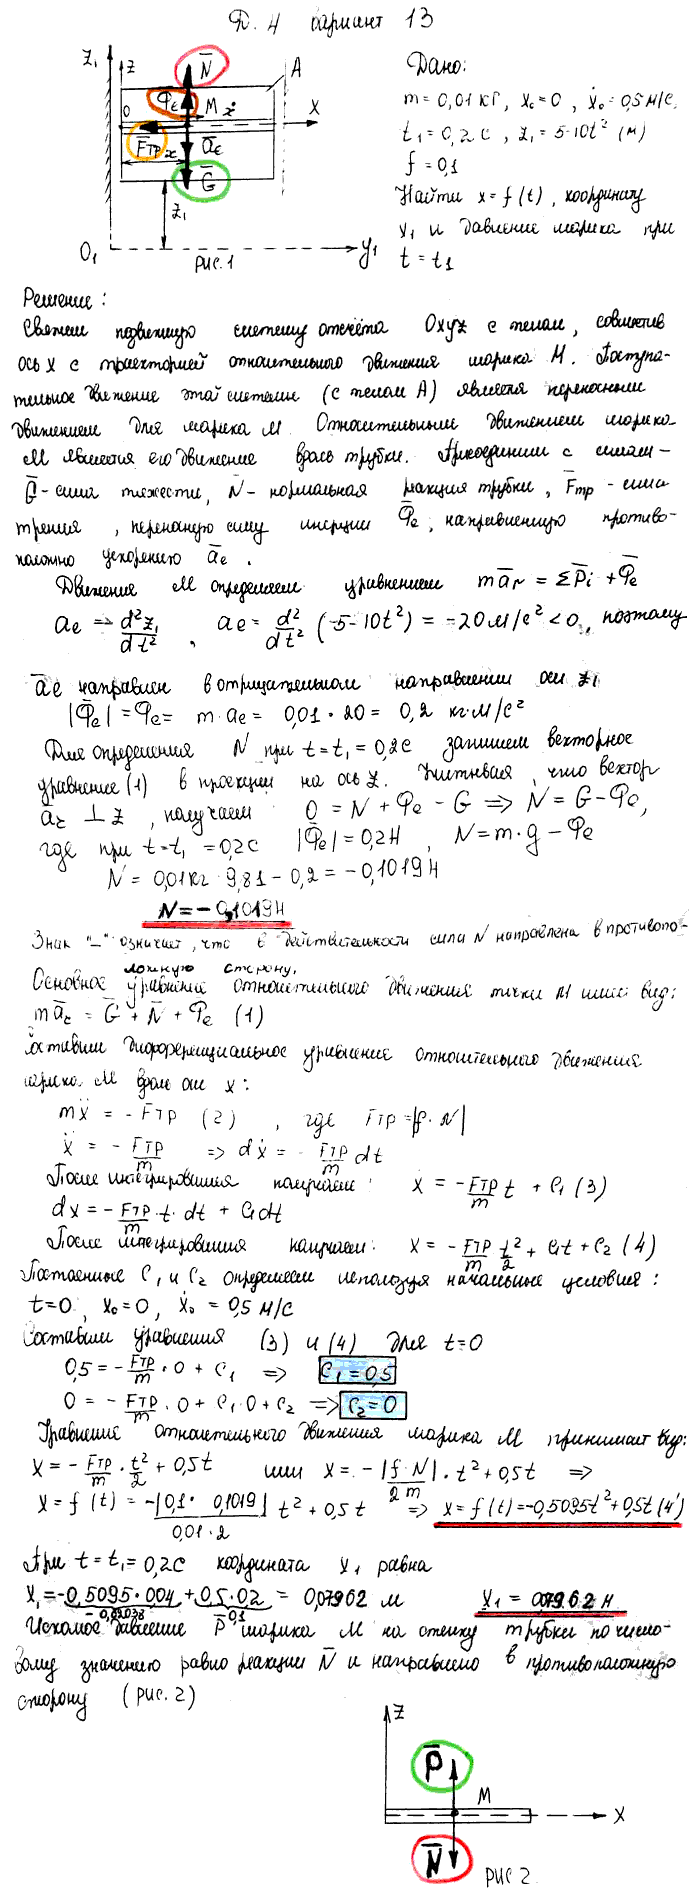 Д. 4 вариант 13
Z₁
z
N̄
A
Дано:
Φ̄e
M
ẋ
0
x
m = 0,01 кг, x₀ = 0, ẋ₀ = 0,5 м/с,
F̄тр
x
āe
t₁ = 0,2 с, z₁ = 5-10t² (м)
Ḡ
f = 0,1
z₁
Найти x = f(t), координату
x₁ и давление шарика при
O₁
y₁
t = t₁
рис. 1
Решение:
Свяжем подвижную систему отсчёта Oxyz с телом, совместив
ось x с траекторией относительного движения шарика M. Поступа-
тельное движение этой системы (с телом A) является переносным
движением для шарика M. Относительным движением шарика
M является его движение вдоль трубки. Присоединим к силам –
Ḡ - сила тяжести, N̄ - нормальная реакция трубки, F̄тр - сила
трения, переносную силу инерции Φ̄e, направленную противо-
положно ускорению āe.
Движение M определяем уравнением mār = ΣP̄i + Φ̄e
ae = d²z₁/dt², ae = d²/dt² (5-10t²) = -20 м/с² < 0, поэтому
āe направлен в отрицательном направлении оси z₁
|Φ̄e| = Φe = m·ae = 0,01·20 = 0,2 кг·м/с²
Для определения N при t = t₁ = 0,2с запишем векторное
уравнение (1) в проекции на ось z. Учитывая, что вектор
ār ⊥ z, получаем 0 = N + Φe - G ⇒ N = G - Φe,
где при t = t₁ = 0,2с |Φ̄e| = 0,2Н, N = m·g - Φe
N = 0,01кг·9,81 - 0,2 = -0,1019 Н
N = -0,1019Н
Знак "–" означает, что в действительности сила N направлена в противопо-
ложную сторону.
Основное уравнение относительного движения точки M имеет вид:
mār = Ḡ + N̄ + Φ̄e (1)
Составим дифференциальное уравнение относительного движения
шарика M вдоль оси x:
mẍ = -Fтр (2), где Fтр = |f·N|
ẍ = -Fтр/m ⇒ dẋ = -Fтр/m dt
После интегрирования получаем: ẋ = -Fтр/m t + C₁ (3)
dx = -Fтр/m·t·dt + C₁dt
После интегрирования получаем: x = -Fтр/m t²/2 + C₁t + C₂ (4)
Постоянные C₁ и C₂ определяем используя начальные условия:
t=0, x₀=0, ẋ₀ = 0,5 м/с
Составим уравнения (3) и (4) для t=0
0,5 = -Fтр/m·0 + C₁ ⇒ C₁ = 0,5
0 = -Fтр/m·0 + C₁·0 + C₂ ⇒ C₂ = 0
Уравнение относительного движения шарика M принимает вид:
x = -Fтр/m·t²/2 + 0,5t или x = -|f·N|/2m·t² + 0,5t ⇒
x = f(t) = -|0,1·0,1019|/0,01·2 t² + 0,5t ⇒ x = f(t) = -0,5095t² + 0,5t (4')
При t = t₁ = 0,2с координата x₁ равна
x₁ = -0,5095·0,04 + 0,5·0,2 = 0,07962 м x₁ = 0,07962 м
-0,02038 0,1
Искомое давление P̄ шарика M на стенку трубки по число-
вому значению равно реакции N̄ и направлено в противоположную
сторону (рис. 2)
z
P̄
M
x
N̄
рис 2